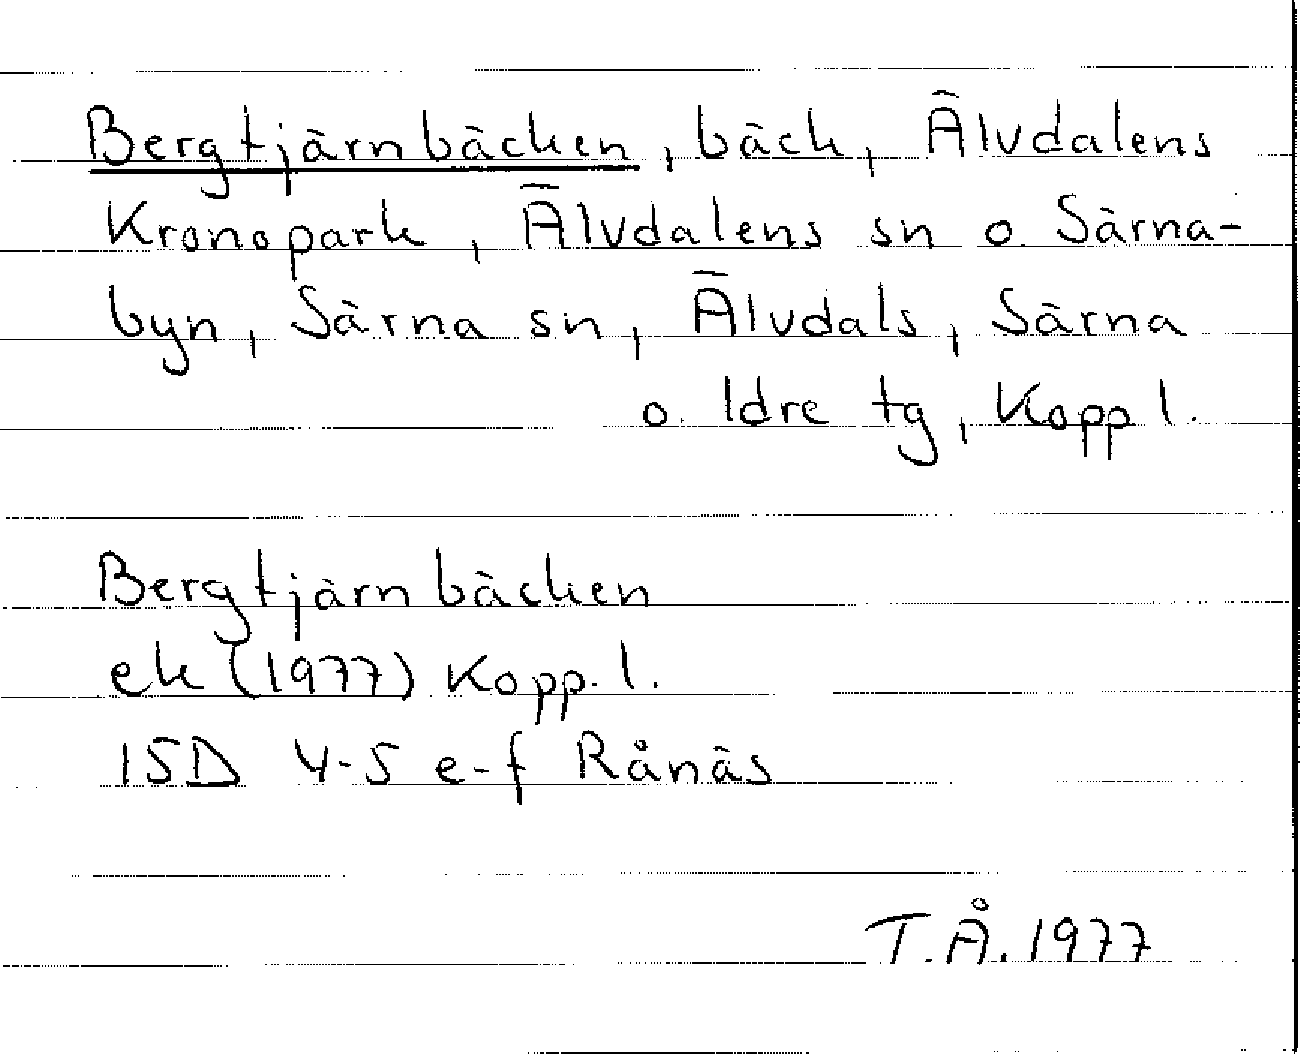 Bergtjärnbäcken, bäck, Älvdalens
Kronopark, Älvdalens sn o. Särna-
byn, Särna sn, Älvdals, Särna
o. Idre tg, Kopp l.
Bergtjärnbäcken
ek (1977) Kopp. l.
15D 4-5 e-f Rånäs
T.Å. 1977